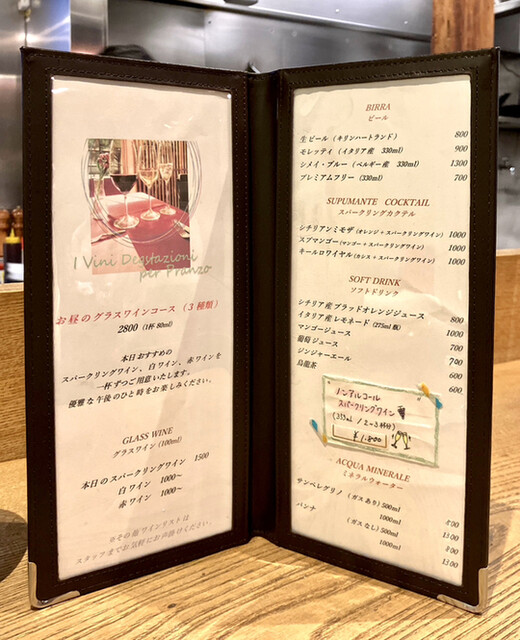 I Vini Degstazioni
per Pranzo
お昼のグラスワインコース（3種類）
2800（1杯 80ml）
本日おすすめの
スパークリングワイン、白ワイン、赤ワインを
一杯ずつご用意いたします。
優雅な午後のひと時をお楽しみください。
GLASS WINE
グラスワイン（100ml）
本日のスパークリングワイン 1500
白ワイン 1000～
赤ワイン 1000～
※その他ワインリストは
スタッフまでお気軽にお声掛けください。
BIRRA
ビール
生ビール（キリンハートランド） 800
モレッティ（イタリア産 330ml） 900
シメイ・ブルー（ベルギー産 330ml） 1300
プレミアムフリー（330ml） 700
SUPUMANTE COCKTAIL
スパークリングカクテル
シチリアンミモザ（オレンジ＋スパークリングワイン） 1000
スプマンゴー（マンゴー＋スパークリングワイン） 1000
キールロワイヤル（カシス＋スパークリングワイン） 1000
SOFT DRINK
ソフトドリンク
シチリア産ブラッドオレンジジュース 800
イタリア産レモネード（275ml瓶） 1000
マンゴージュース 700
葡萄ジュース 700
ジンジャーエール 600
烏龍茶 600
ノンアルコール
スパークリングワイン
（355ml／2〜3杯分）
¥1,800
ACQUA MINERALE
ミネラルウォーター
サンペレグリノ（ガスあり）500ml 800
1000ml 1300
パンナ（ガスなし）500ml 800
1000ml 1300